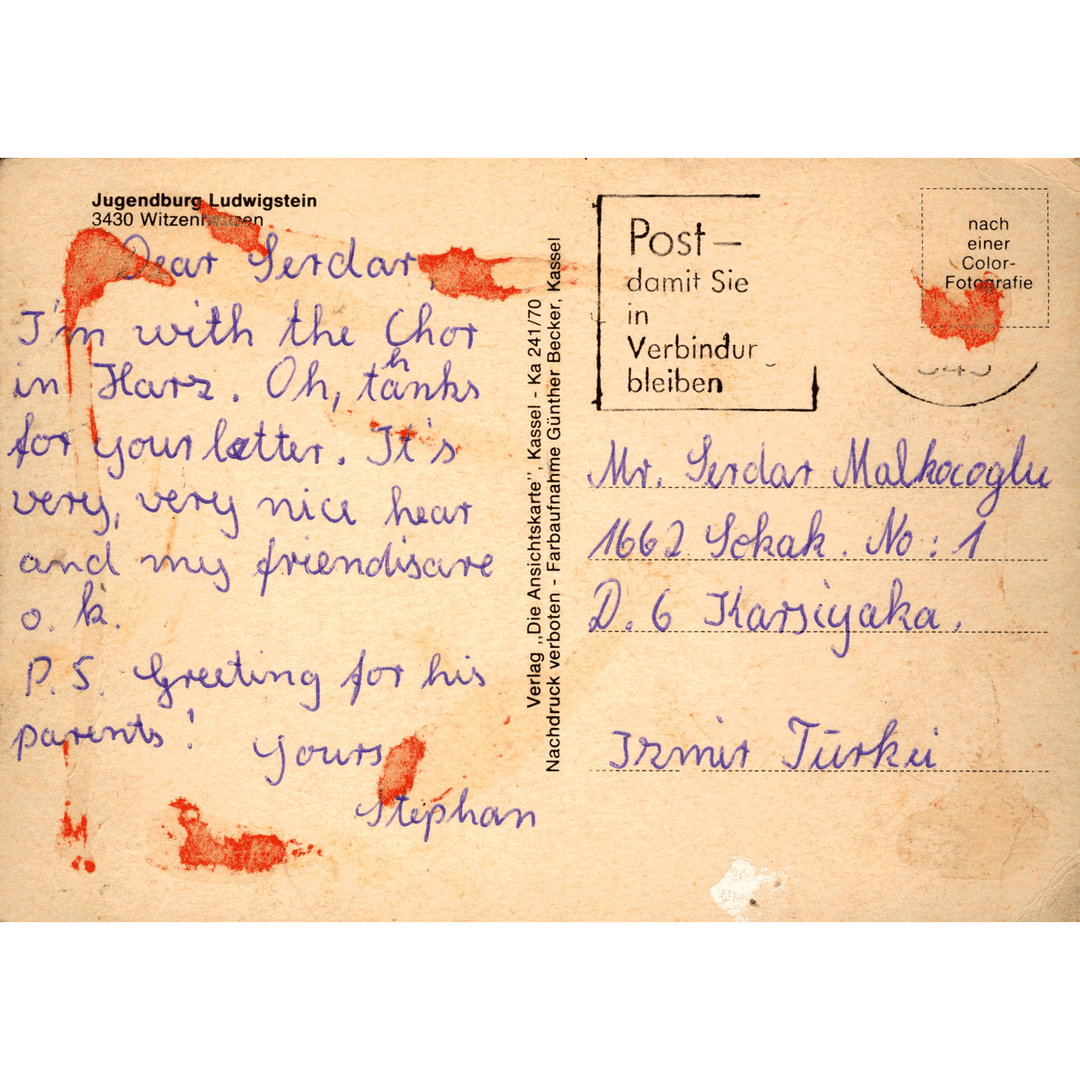 Jugendburg Ludwigstein
3430 Witzenhausen
Dear Serdar,
I'm with the Chor
in Harz. Oh, thanks
for your letter. It's
very, very nice hear
and my friendisare
o.k.
P.S. Greeting for his
parents!
Yours
Stephan
Verlag „Die Ansichtskarte”, Kassel - Ka 241/70
Nachdruck verboten - Farbaufnahme Günther Becker, Kassel
Post—
damit Sie
in
Verbindun
bleiben
nach
einer
Color-
Fotografie
Mr. Serdar Malkocoglu
1662 Sokak. No: 1
D. 6 Karsiyaka.
Izmir Türkei